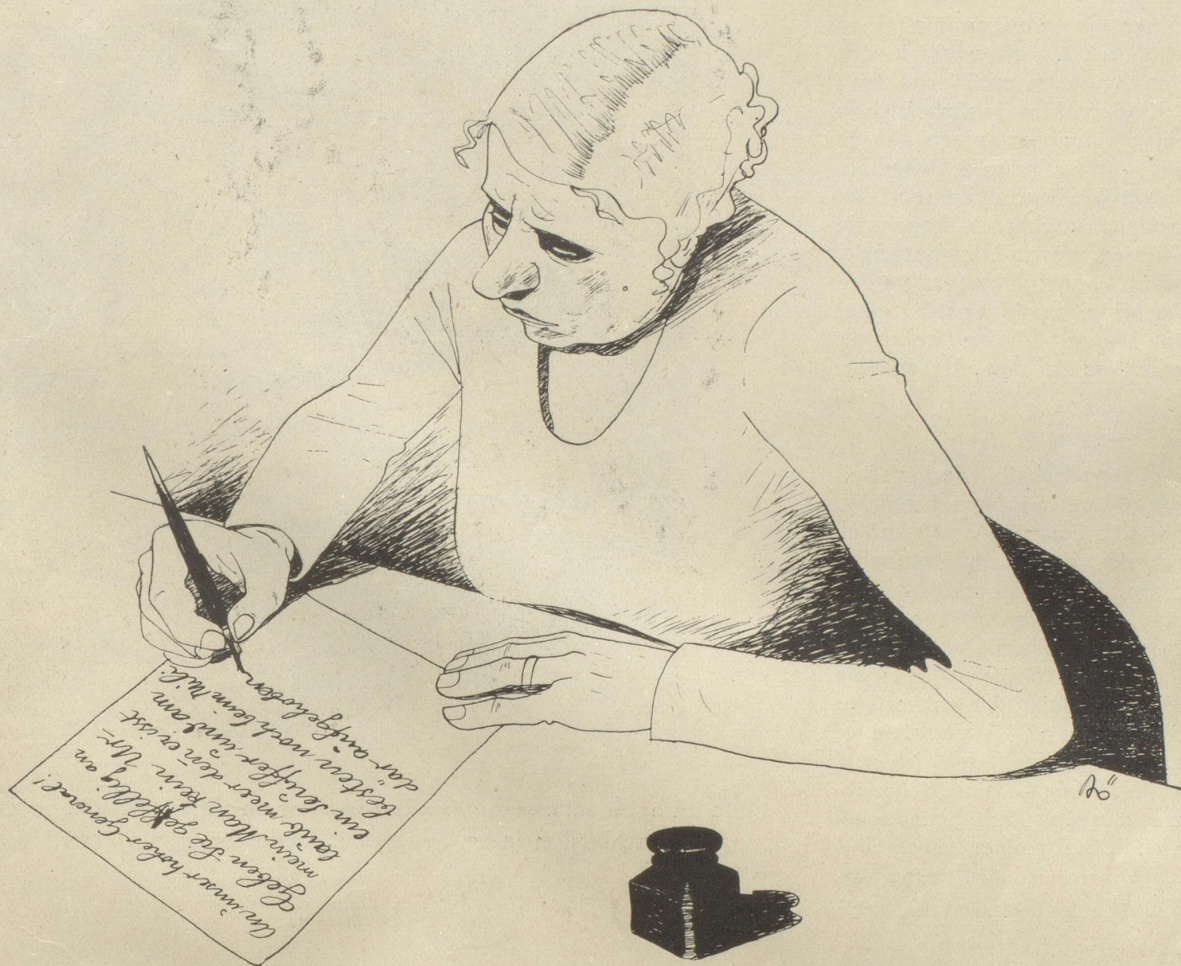 An unser hoher General!
Geben Sie gefellig an
mein Man kein Ur-
laub meer den̄ er isst
ein Seuffer und am
besten noch beim Mili:
där aufgehoben
Bö